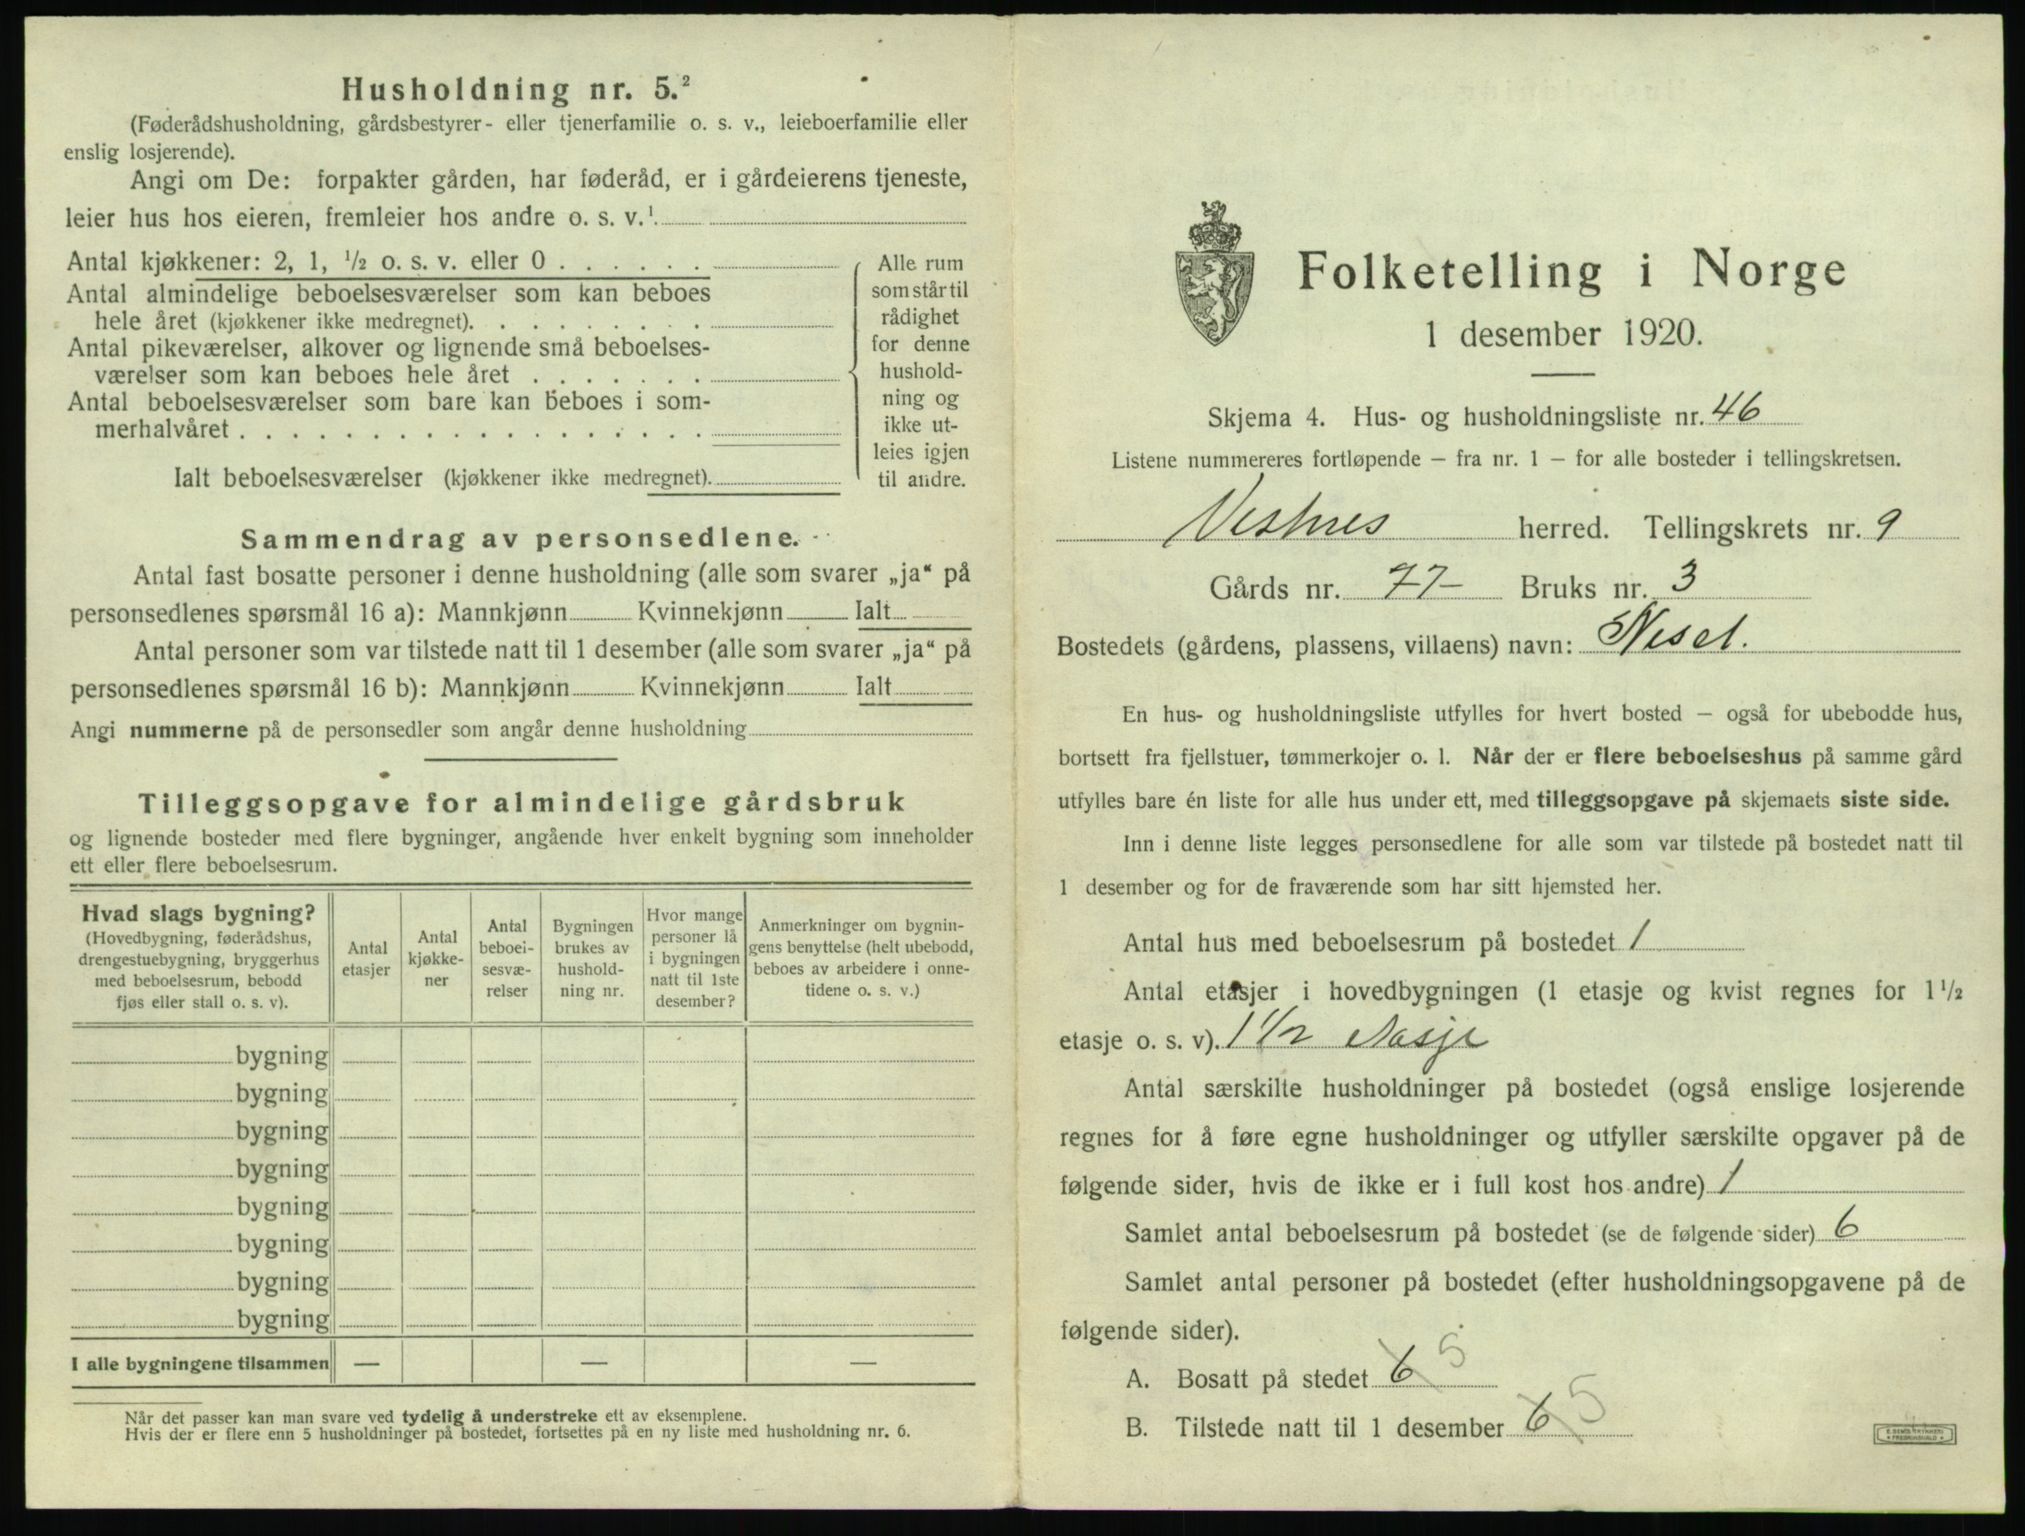 Husholdning nr. 5.²
(Føderådshusholdning, gårdsbestyrer- eller tjenerfamilie o. s. v., leieboerfamilie eller
enslig losjerende).
Angi om De: forpakter gården, har føderåd, er i gårdeierens tjeneste,
leier hus hos eieren, fremleier hos andre o. s. v.¹
Antal kjøkkener: 2, 1, ½ o. s. v. eller 0 . . . . . .
Antal almindelige beboelsesværelser som kan beboes
hele året (kjøkkener ikke medregnet). . . . . . . . .
Antal pikeværelser, alkover og lignende små beboelses-
værelser som kan beboes hele året . . . . . . .
Antal beboelsesværelser som bare kan beboes i som-
merhalvåret . . . . . . . . . . . . . . . . . .
Ialt beboelsesværelser (kjøkkener ikke medregnet).
Alle rum
som står til
rådighet
for denne
hushold-
ning og
ikke ut-
leies igjen
til andre.
Sammendrag av personsedlene.
Antal fast bosatte personer i denne husholdning (alle som svarer „ja“ på
personsedlenes spørsmål 16 a): Mannkjønn Kvinnekjønn Ialt
Antal personer som var tilstede natt til 1 desember (alle som svarer „ja“ på
personsedlenes spørsmål 16 b): Mannkjønn Kvinnekjønn Ialt
Angi nummerne på de personsedler som angår denne husholdning
Tilleggsopgave for almindelige gårdsbruk
og lignende bosteder med flere bygninger, angående hver enkelt bygning som inneholder
ett eller flere beboelsesrum.
Hvad slags bygning?
(Hovedbygning, føderådshus,
drengestuebygning, bryggerhus
med beboelsesrum, bebodd
fjøs eller stall o. s. v).
Antal
etasjer
Antal
kjøkke-
ner
Antal
beboel-
sesvæ-
relser
Bygningen
brukes av
hushold-
ning nr.
Hvor mange
personer lå
i bygningen
natt til 1ste
desember?
Anmerkninger om bygnin-
gens benyttelse (helt ubebodd,
beboes av arbeidere i onne-
tidene o. s. v.)
bygning
bygning
bygning
bygning
bygning
bygning
bygning
bygning
I alle bygningene tilsammen — — —
Når det passer kan man svare ved tydelig å understreke ett av eksemplene.
Hvis der er flere enn 5 husholdninger på bostedet, fortsettes på en ny liste med husholdning nr. 6.
Folketelling i Norge
1 desember 1920.
Skjema 4. Hus- og husholdningsliste nr. 46
Listene nummereres fortløpende – fra nr. 1 – for alle bosteder i tellingskretsen.
Vestnes herred. Tellingskrets nr. 9
Gårds nr. 77- Bruks nr. 3
Bostedets (gårdens, plassens, villaens) navn: Neset.
En hus- og husholdningsliste utfylles for hvert bosted – også for ubebodde hus,
bortsett fra fjellstuer, tømmerkojer o. l. Når der er flere beboelseshus på samme gård
utfylles bare én liste for alle hus under ett, med tilleggsopgave på skjemaets siste side.
Inn i denne liste legges personsedlene for alle som var tilstede på bostedet natt til
1 desember og for de fraværende som har sitt hjemsted her.
Antal hus med beboelsesrum på bostedet 1
Antal etasjer i hovedbygningen (1 etasje og kvist regnes for 1½
etasje o. s. v). 1 1/2 etasje
Antal særskilte husholdninger på bostedet (også enslige losjerende
regnes for å føre egne husholdninger og utfyller særskilte opgaver på de
følgende sider, hvis de ikke er i full kost hos andre) 1
Samlet antal beboelsesrum på bostedet (se de følgende sider) 6
Samlet antal personer på bostedet (efter husholdningsopgavene på de
følgende sider).
A. Bosatt på stedet 6 5
B. Tilstede natt til 1 desember 6 5